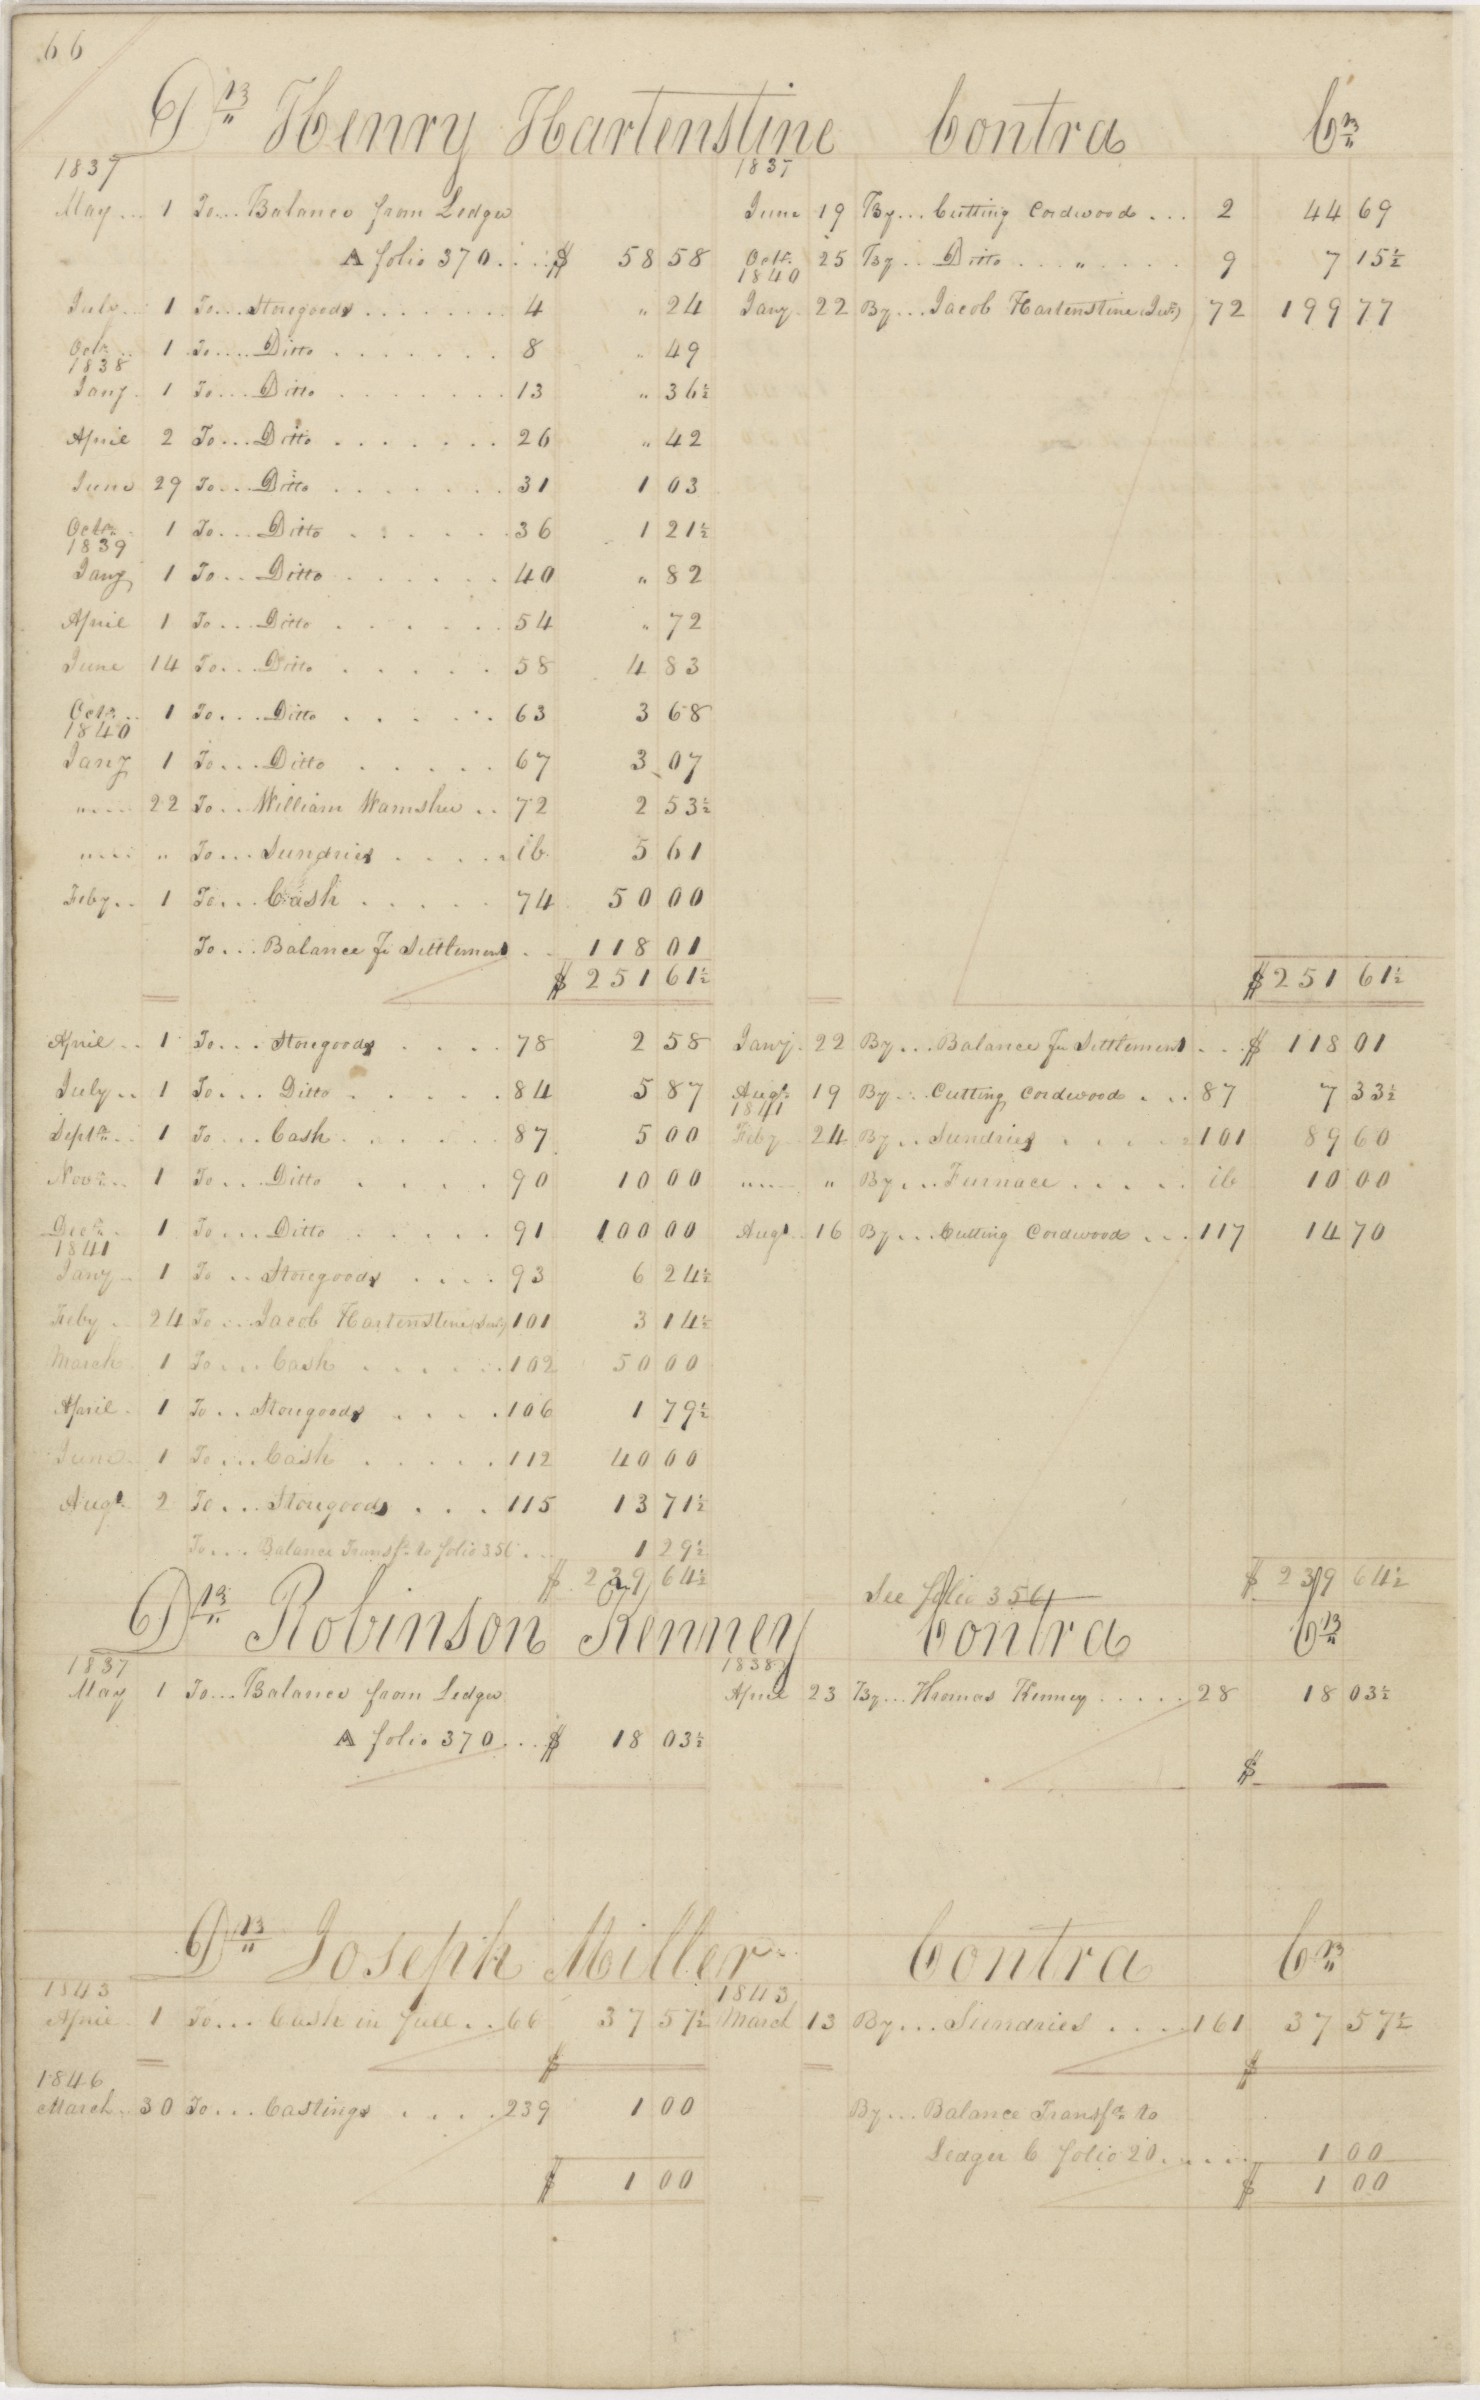 66
Dr Henry Hartenstine Contra Cr
1837 1837
May 1 To Balance from Ledger June 19 By Cutting Cordwood 2 44 69
A folio 370 $ 58 58 Octr 25 By Ditto " 9 7 15½
1840
July 1 To Storegoods 4 " 24 Jany 22 By Jacob Hartenstine (Junr) 72 199 77
Octr 1 To Ditto 8 " 49
1838
Jany 1 To Ditto 13 " 36½
April 2 To Ditto 26 " 42
June 29 To Ditto 31 1 03
Octr 1 To Ditto 36 1 21½
1839
Jany 1 To Ditto 40 " 82
April 1 To Ditto 54 " 72
June 14 To Ditto 58 4 83
Octr 1 To Ditto 63 3 68
1840
Jany 1 To Ditto 67 3 07
" 22 To William Wamsher 72 2 53½
" " To Sundries ib 5 61
Feby 1 To Cash 74 50 00
To Balance Fr Settlement 118 01
$ 251 61½ $ 251 61½
April 1 To Storegoods 78 2 58 Jany 22 By Balance Fr Settlement $ 118 01
July 1 To Ditto 84 5 87 Augt 19 By Cutting Cordwood 87 7 33½
1841
Septr 1 To Cash 87 5 00 Feby 24 By Sundries 101 89 60
Novr 1 To Ditto 90 10 00 " " By Furnace ib 10 00
Decr 1 To Ditto 91 100 00 Augt 16 By Cutting Cordwood 117 14 70
1841
Jany 1 To Storegoods 93 6 24½
Feby 24 To Jacob Hartenstine (Junr) 101 3 14½
March 1 To Cash 102 50 00
April 1 To Storegoods 106 1 79½
June 1 To Cash 112 40 00
Augt 2 To Storegoods 115 13 71½
To Balance Transfr to folio 356 1 29½
$ 239 64½ See folio 356 $ 239 64½
Dr Robinson Kenney Contra Cr
1837 1838
May 1 To Balance from Ledger April 23 By Thomas Kenney 28 18 03½
A folio 370 $ 18 03½
$
Dr Joseph Miller Contra Cr
1843 1843
April 1 To Cash in full 66 37 57½ March 13 By Sundries 161 37 57½
$ $
1846
March 30 To Castings 239 1 00 By Balance Transfr to
Ledger C folio 20 1 00
$ 1 00 $ 1 00